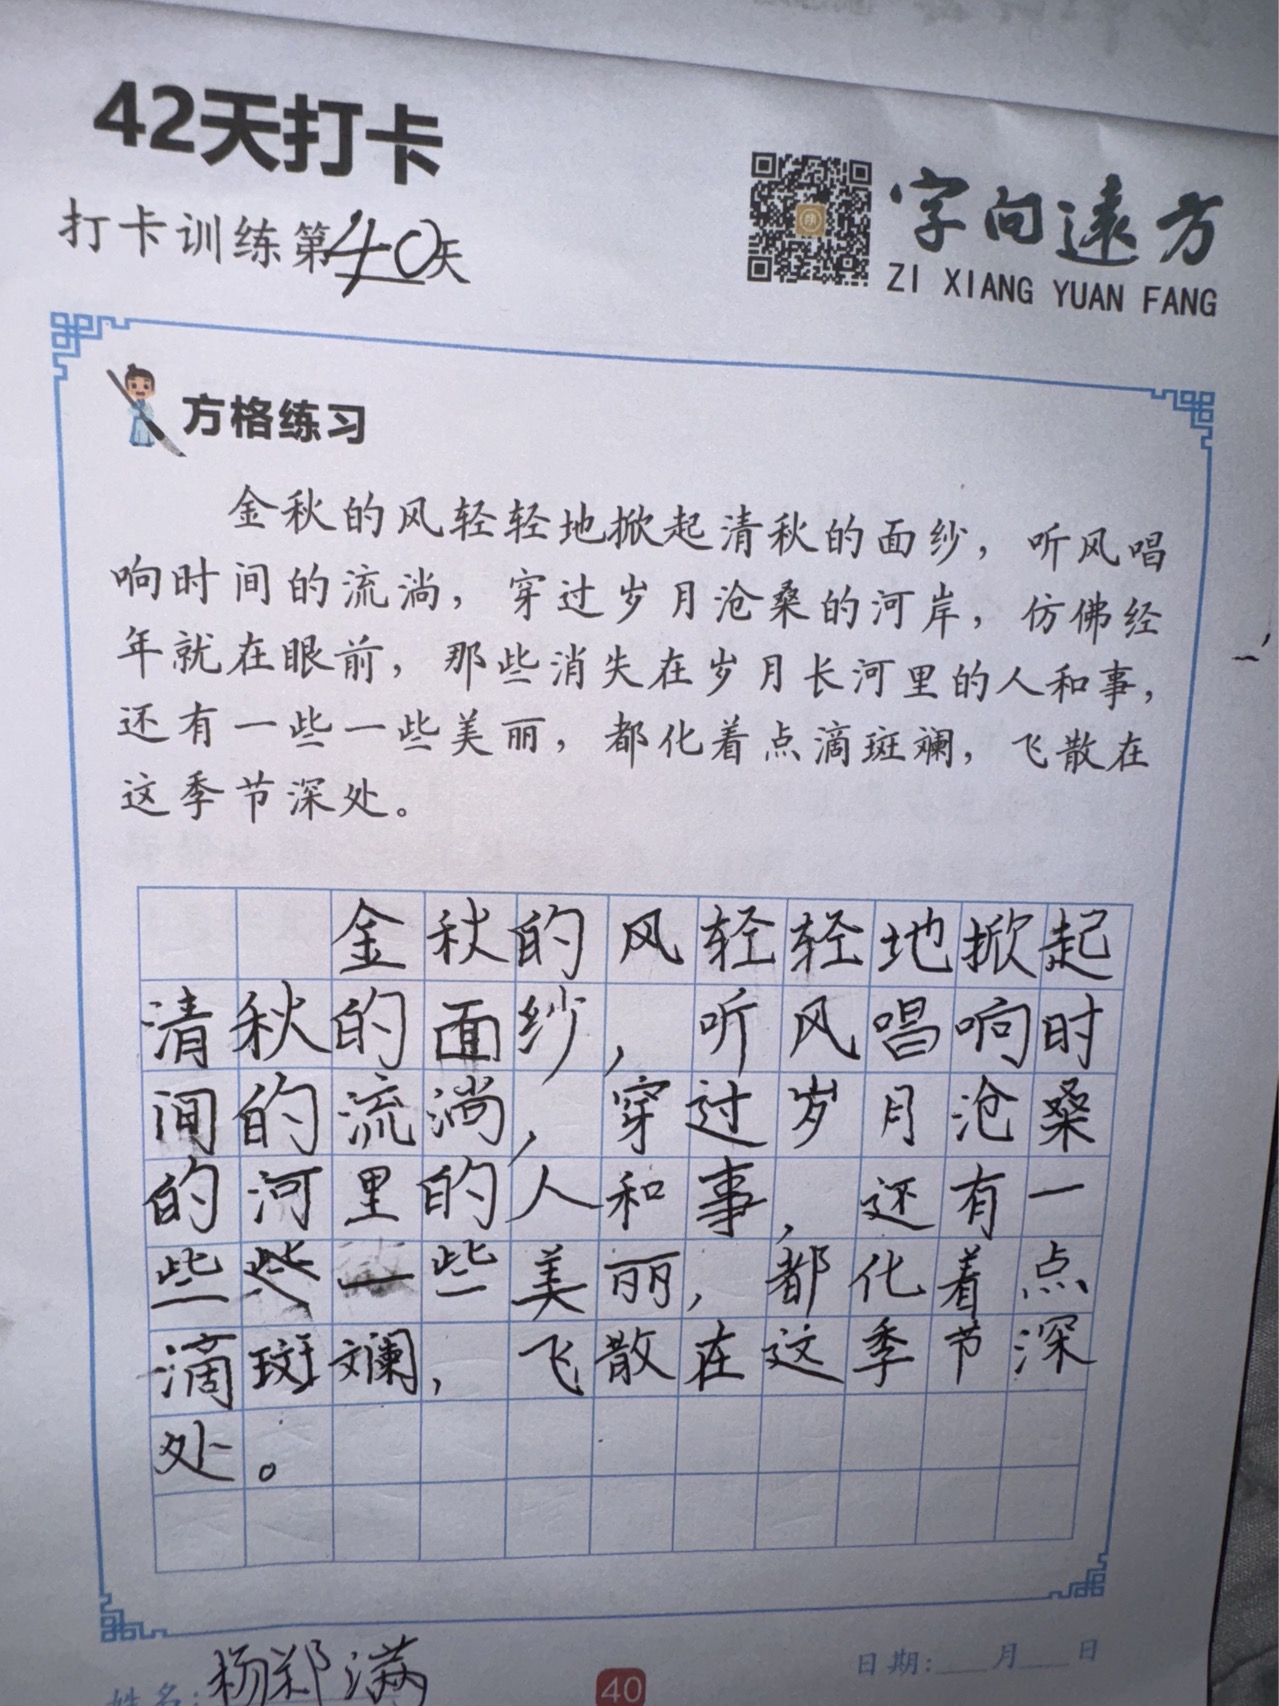 42天打卡
打卡训练第40天
字向遠方
ZI XIANG YUAN FANG
方格练习
金秋的风轻轻地掀起清秋的面纱，听风唱
响时间的流淌，穿过岁月沧桑的河岸，仿佛经
年就在眼前，那些消失在岁月长河里的人和事，
还有一些一些美丽，都化着点滴斑斓，飞散在
这季节深处。
金秋的风轻轻地掀起
清秋的面纱，听风唱响时
间的流淌，穿过岁月沧桑
的河里的人和事，还有一
些些一些美丽，都化着点
滴斑斓，飞散在这季节深
处。
姓名：杨郑满
40
日期：___月___日